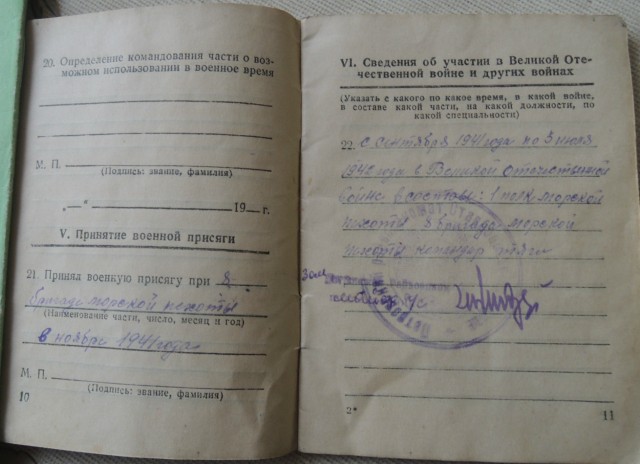 20. Определение командования части о воз-
можном использовании в военное время
М. П.
(Подпись: звание, фамилия)
„—“ 19 — г.
V. Принятие военной присяги
21. Принял военную присягу при 8
бригаде морской пехоты
(Наименование части, число, месяц и год)
в ноябре 1941 года
М. П.
(Подпись: звание, фамилия)
10
VI. Сведения об участии в Великой Оте-
чественной войне и других войнах
(Указать с какого по какое время, в какой войне,
в составе какой части, на какой должности, по
какой специальности)
22. С сентября 1941 года по 3 июля
1942 года в Великой отечественной
войне в составе: 1 полк морской
пехоты 8 бригада морской
пехоты
2*
11